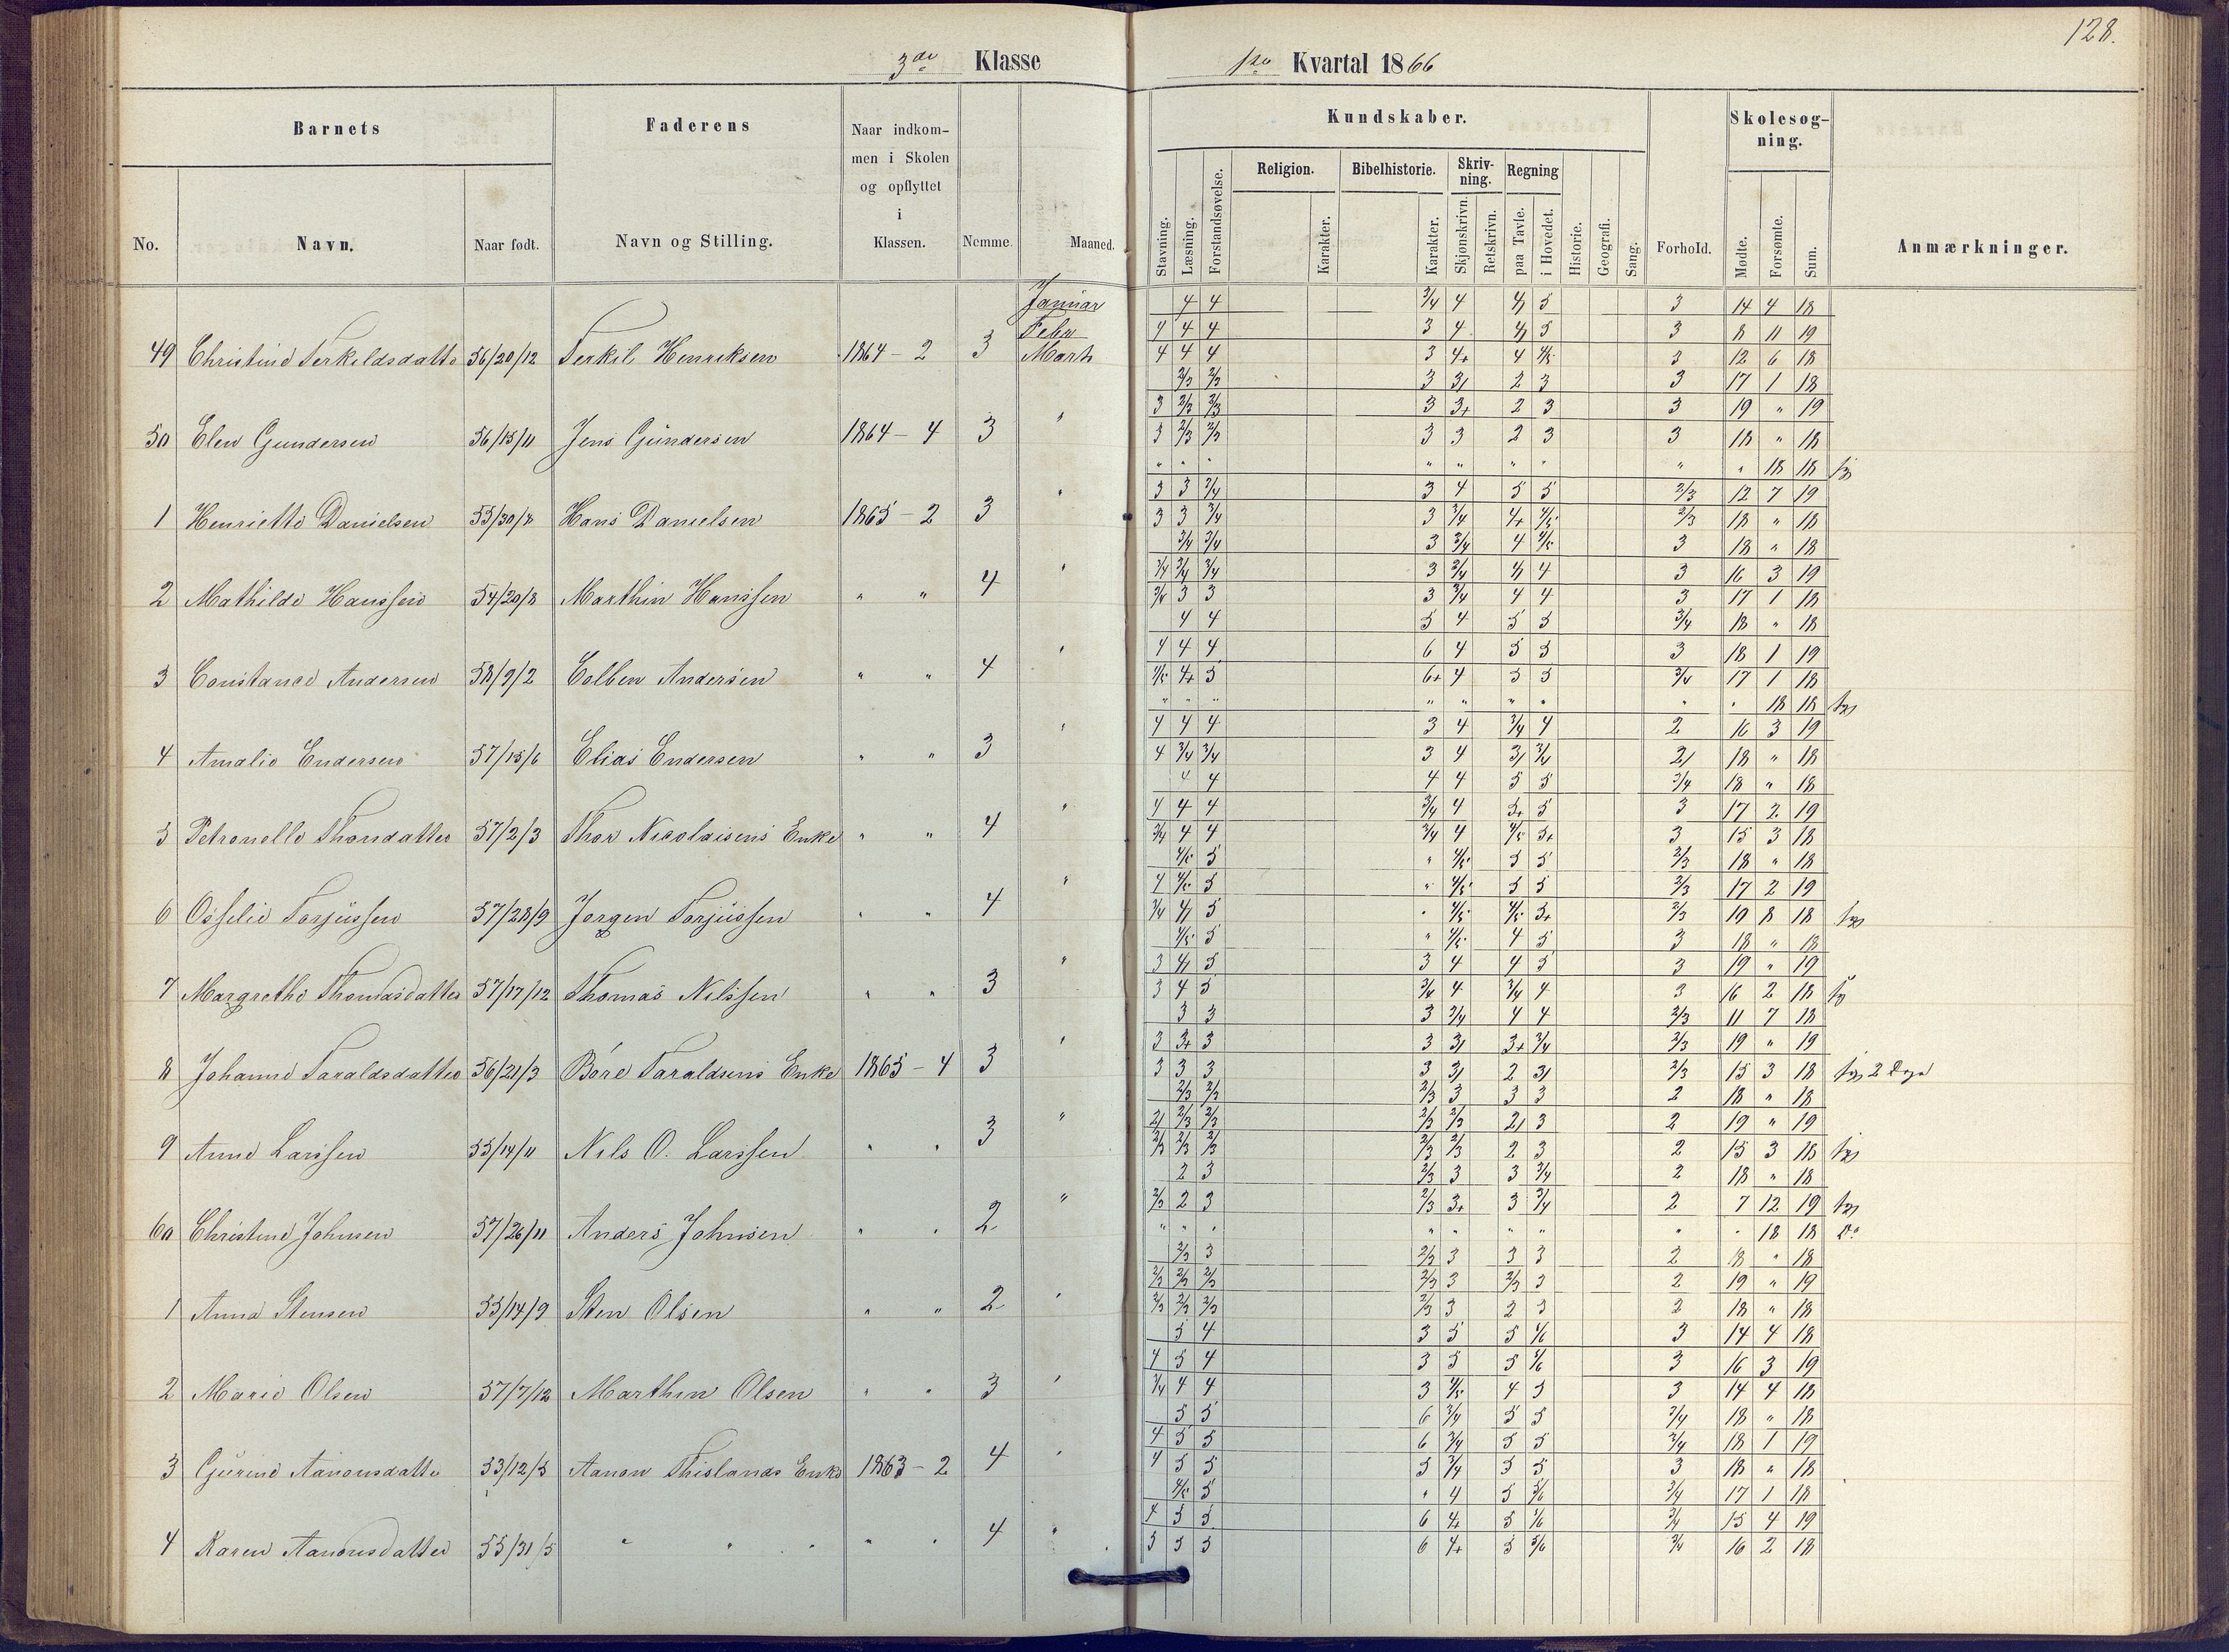 128.
3die Klasse
1ste Kvartal 1866
Barnets
Faderens
Naar indkommen i Skolen og opflyttet i Klassen.
Nemme.
Maaned.
No.
Navn.
Naar født.
Navn og Stilling.
Kundskaber.
Stavning.
Læsning.
Forstandsøvelse.
Religion.
Karakter.
Bibelhistorie.
Karakter.
Skrivning.
Skjønskrivn.
Retskrivn.
Regning
paa Tavle.
i Hovedet.
Historie.
Geografi.
Sang.
Forhold.
Skolesøgning.
Mødte.
Forsømte.
Sum.
Anmærkninger.
49 Christine Terkildsdatte 56/20/12 Terkil Henriksen 1864 - 2 3 Januar Febr Marts
4 4 3/4 4 3 14 4 18
4 4 4 3 4 3 8 11 19
4 4 4 3 4+ 4 4/5 3 12 6 18
50 Elen Gundersen 56/15/11 Jens Gundersen 1864 - 4 3 "
2/3 2/3 3 2 3 3 17 1 18
3 2/3 2/3 3 3+ 2 3 3 19 " 19
3 2/3 2/3 3 3 2 3 3 18 " 18
1 Henriette Danielsen 55/30/8 Hans Danielsen 1865 - 2 3 "
" " " " " " " " " 18 18
3 3 3/4 3 4 5 5 2/3 12 7 19
3 3 3/4 3 3/4 4+ 4/5 2/3 18 " 18
2 Mathilde Hanssen 54/29/8 Marthin Hanssen " " 4 "
3/4 3/4 3 3/4 4 4/5 3 18 " 18
3/4 3/4 3/4 3 3/4 4 3 16 3 19
3/4 3 3 3 3/4 4 4 3 17 1 18
3 Constance Andersen 58/9/2 Colben Andersen " " 4 "
4 4 5 4 5 5 3/4 18 " 18
4 4 4 6 4 5 5 3 18 1 19
4/5 4+ 5 6+ 4 5 5 3/4 17 1 18
4 Amalie Endersen 57/15/6 Elias Endersen " " 3 "
" " " " " " " " " 18 18
4 4 4 3 4 3/4 4 2 16 3 19
4 3/4 3/4 3 4 3/4 18 " 18
5 Petronelle Thorsdatter 57/2/3 Thor Nicolaisens Enke " " 4 "
4 4 4 4 5 5 3/4 18 " 18
4 4 4 3/4 4 5+ 5 3 17 2 19
3/4 4 4 3/4 4 4/5 5+ 3 15 3 18
6 Osselie Torjussen 57/28/9 Jorgen Torjussen " " 4 "
4/5 5 " 4/5 5 5 2/3 18 " 18
4 4/5 5 " 4/5 5 5 2/3 17 2 19
3/4 5 " 4/5 4/5 5+ 2/3 10 8 18
7 Margrethe Thomasdatter 57/17/12 Thomas Nilssen " " 3 "
4/5 5 " 4/5 4 5 3 18 " 18
3 5 3 4 4 5 3 19 " 19
3 4 5 3/4 4 3/4 4 3 16 2 18
8 Johanne Taraldsdatter 56/21/3 Bore Taraldsens Enke 1865 - 4 3 "
3 3 3 3/4 4 4 2/3 11 7 18
3 3+ 3 3 3+ 3/4 2/3 19 " 19
3 3 3 3 2 2/3 15 3 18 2 Dage
9 Anne Larssen 55/14/11 Nils O. Larssen " " 3 "
2/3 2/3 2/3 3 3 3 2 18 " 18
2/3 2/3 2/3 2/3 3 2 19 " 19
2/3 2/3 2/3 2/3 2/3 2 3 2 15 3 18
60 Christine Johnsen 57/26/11 Anders Johnsen " " 2 "
2 3 2/3 3 3 3/4 2 18 " 18
2/3 2 3 2/3 3+ 3 3/4 2 7 12 19
" " " " " " " " " 18 18 Do
1 Anna Stensen 55/14/9 Sten Olsen " " 2 "
2/3 3 2/3 3 3 3 2 18 " 18
2/3 2/3 2/3 2/3 3 2/3 3 2 19 " 19
2/3 2/3 2/3 2/3 3 2 3 2 18 " 18
2 Marie Olsen 57/7/12 Marthin Olsen " " 3 "
5 4 3 5 5 3 14 4 18
4 5 4 3 5 5 3 16 3 19
3/4 4 4 3 4/5 4 5 3 14 4 18
3 Gurine Aanonsdatte 53/12/5 Aanon Thislands Enke 1863 - 2 4 "
5 5 6 3/4 5 5 3/4 18 " 18
4 5 5 6 3/4 5 5 3/4 18 1 19
4 5 5 5 3/4 5 5 3 18 " 18
4 Karen Aanonsdatter 55/31/5 " " " " " 4 "
4/5 5 " 4 5 5/6 3/4 17 1 18
4 5 5 6 4+ 5 3/4 15 4 19
5 5 5 6 4+ 5 5/6 3/4 16 2 18